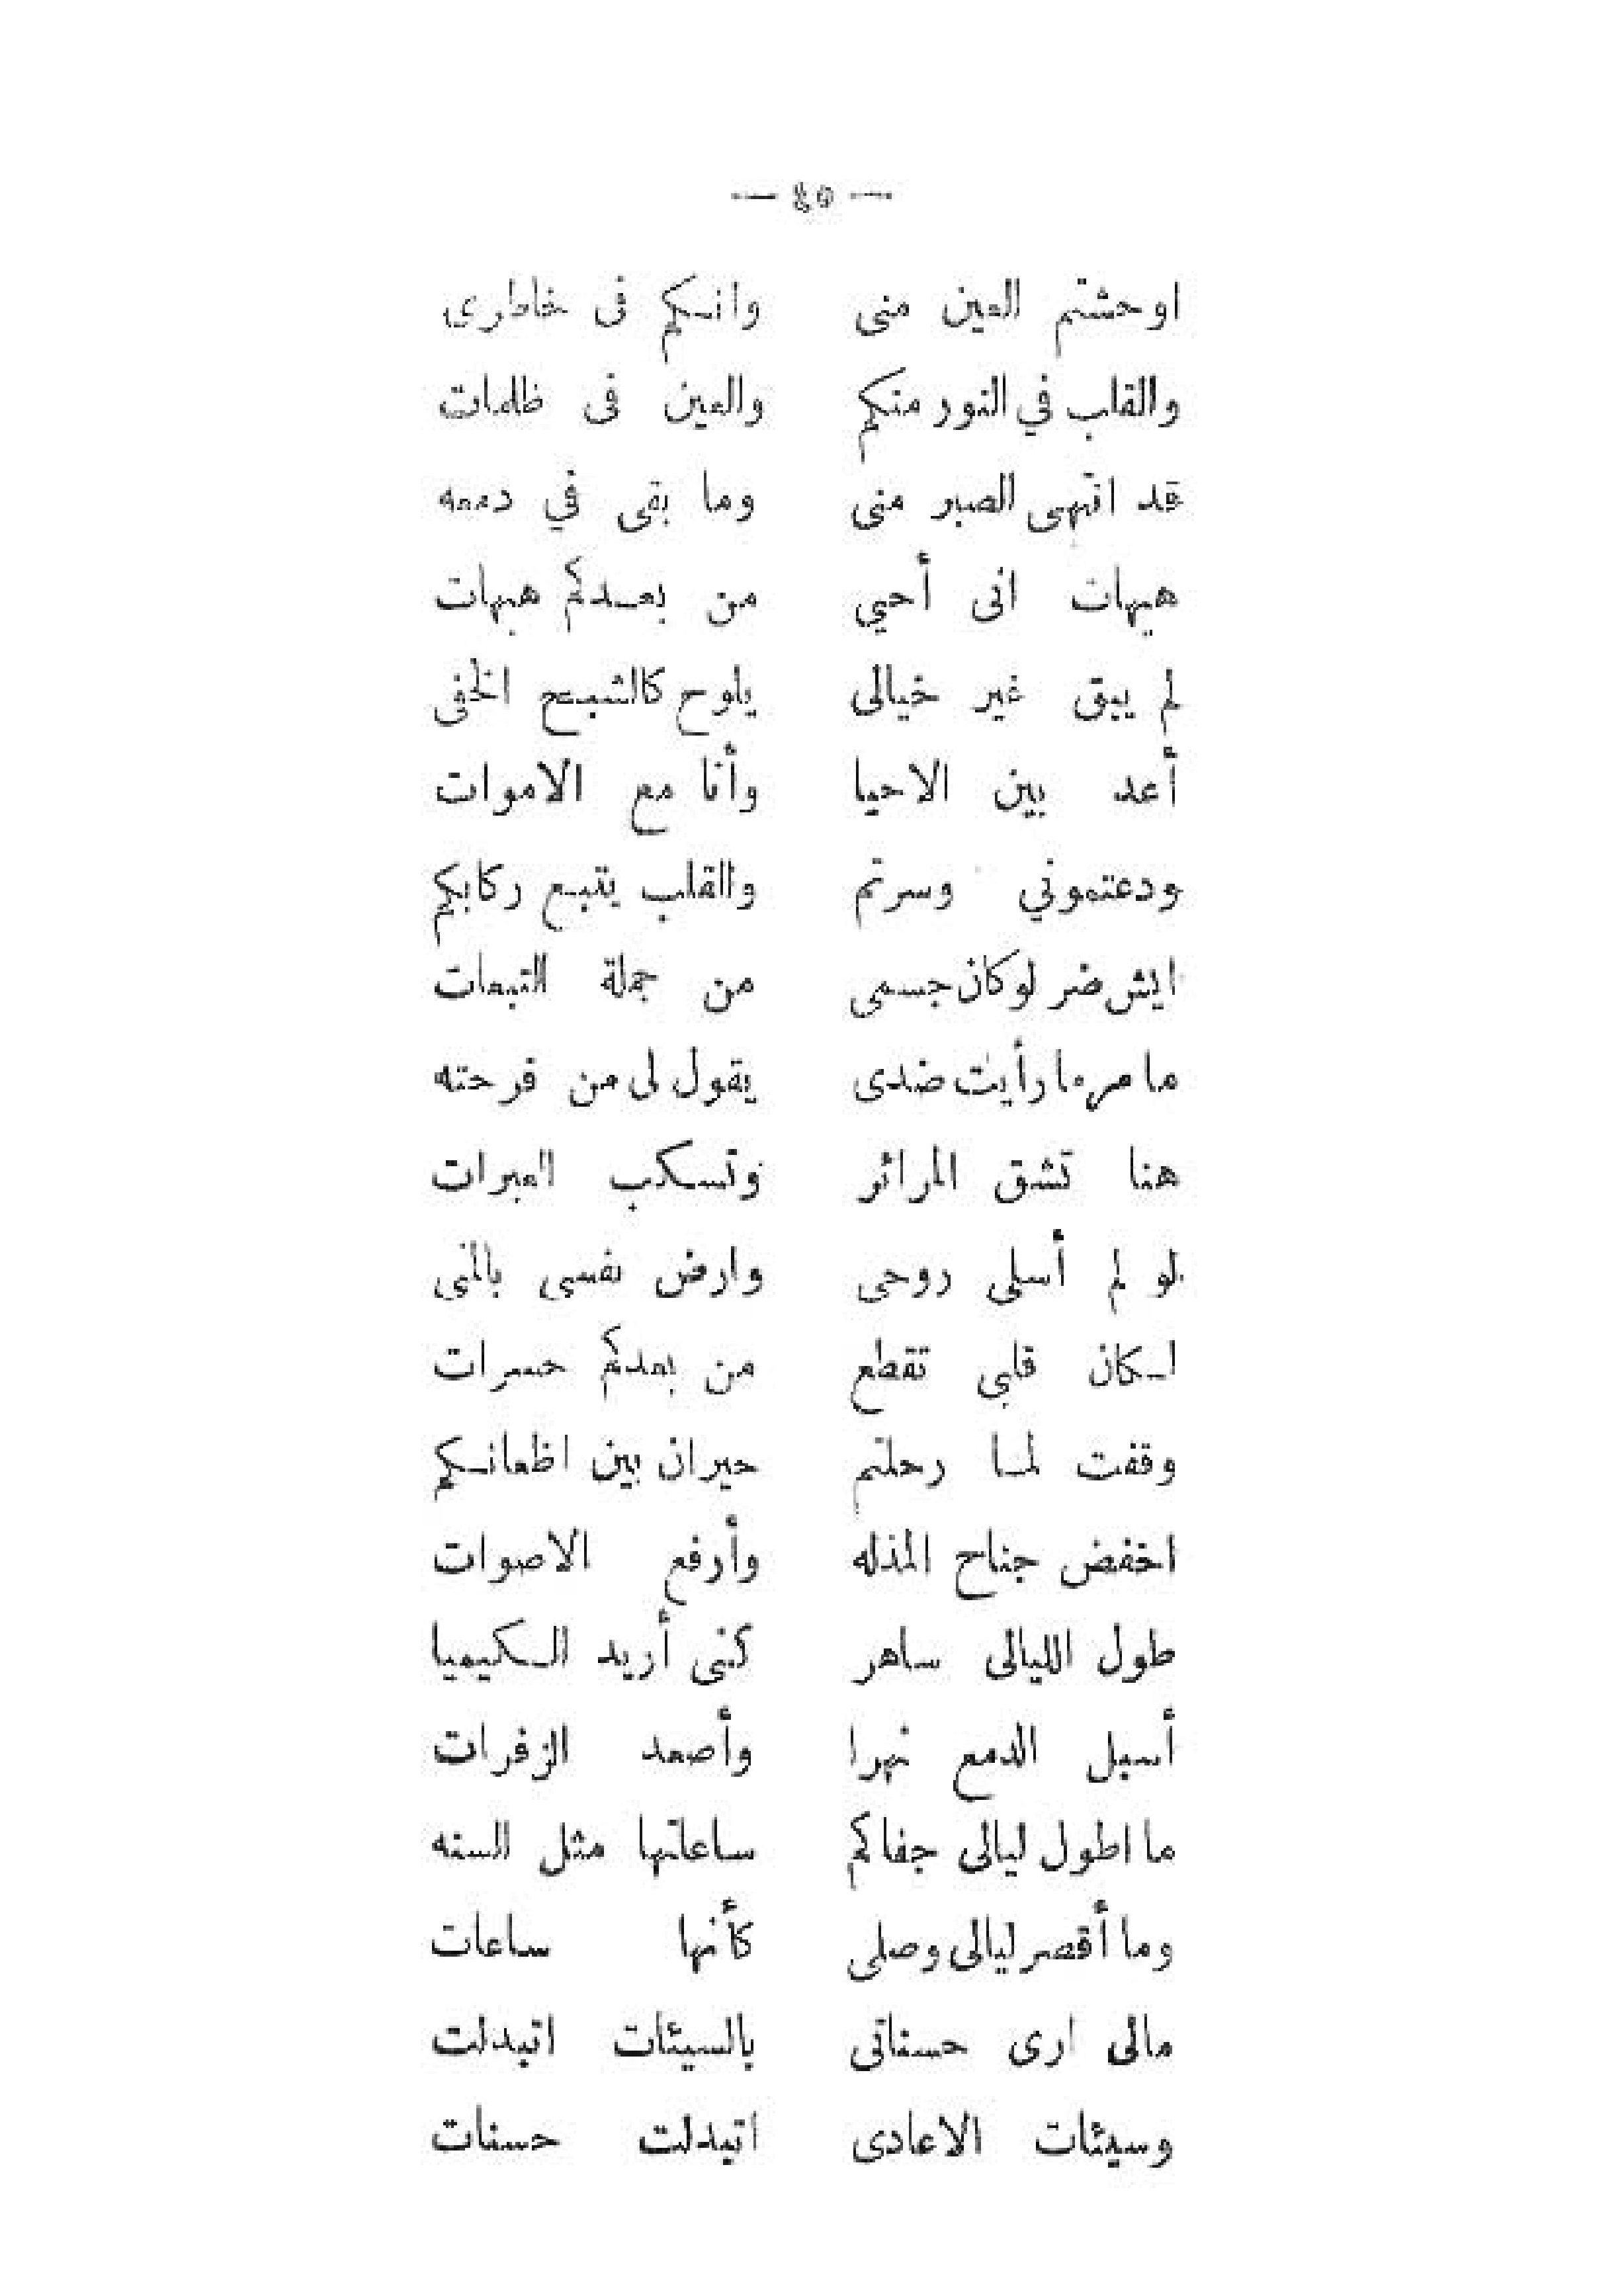 — ٤٥ —
اوحشتم العين منى وانكم فى خاطرى
والقلب في النور منكم والعين فى ظلمات
قد انتهى الصبر منى وما بقى في دمعه
هيهات انى أحيي من بعدكم هيهات
لم يبق غير خيالى يلوح كالشبح الخفى
أعد بين الاحيا وأنا مع الاموات
ودعتموني وسرتم والقلب يتبع ركابكم
ايش ضر لوكان جسمى من جملة التبعات
ما مر ما رأيت ضدى يقول لى من فرحته
هنا تشق المرائر وتسكب العبرات
لو لم أسلى روحى وارض نفسى بالمنى
لكان قلبى تقطع من بعدكم حسرات
وقفت لما رحلتم حيران بين اظعانكم
اخفض جناح المذله وأرفع الاصوات
طول الليالى ساهر كنى أريد الكيميا
أسبل الدمع نهرا وأصعد الزفرات
ما اطول ليالى جفاكم ساعاتها مثل السنه
وما أقصر ليالى وصلى كأنها ساعات
مالى ارى حسناتى بالسيئات اتبدلت
وسيئات الاعادى اتبدلت حسنات